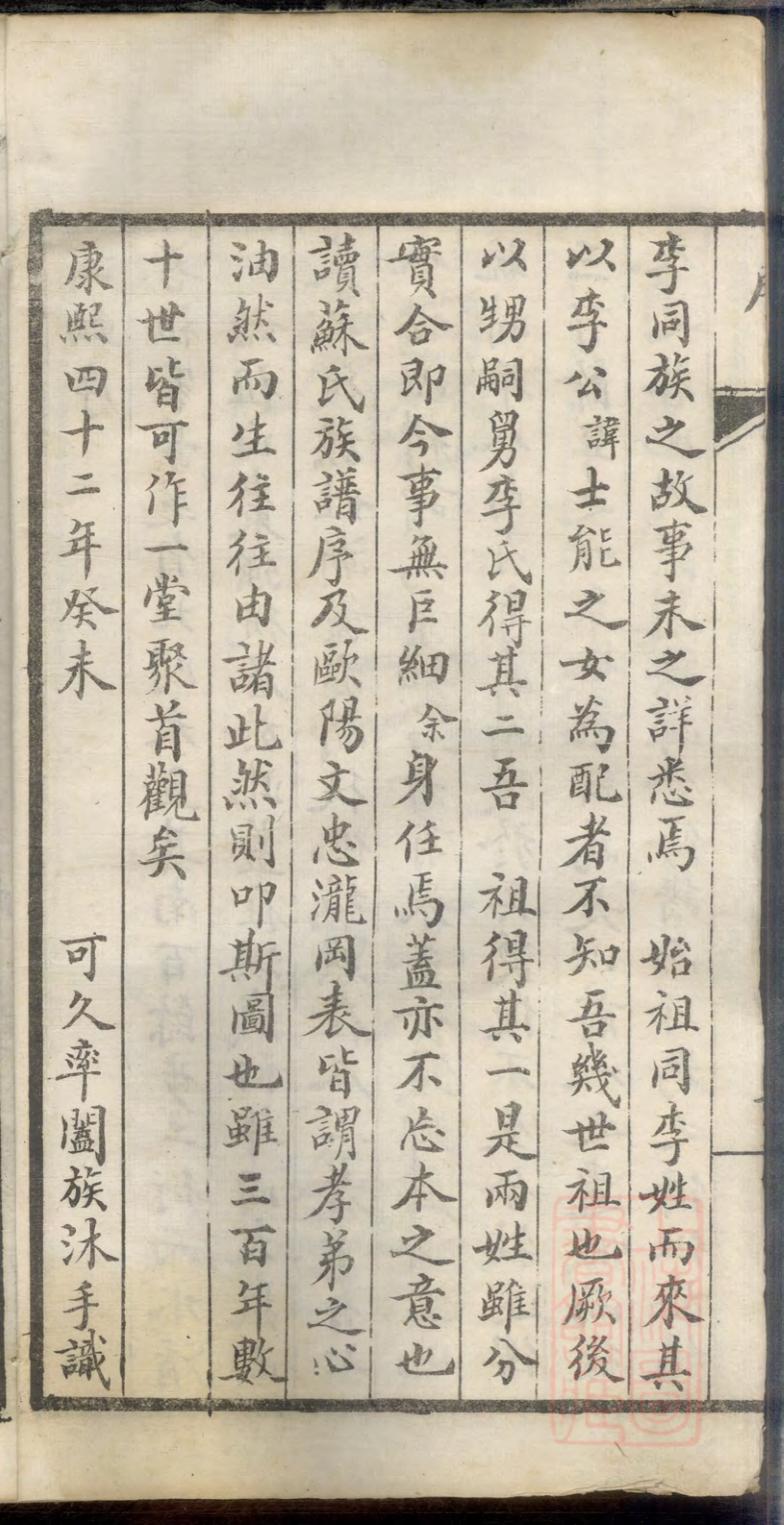 李同族之故事未之詳悉焉　始祖同李姓而來其
以李公諱士能之女為配者不知吾幾世祖也厥後
以甥嗣舅李氏得其二吾　祖得其一是兩姓雖分
實合即今事無巨細余身任焉蓋亦不忘本之意也
讀蘇氏族譜序及歐陽文忠瀧岡表皆謂孝弟之心
油然而生往往由諸此然則叩斯圖也雖三百年數
十世皆可作一堂聚首觀矣
康熙四十二年癸未　可久率闔族沐手識